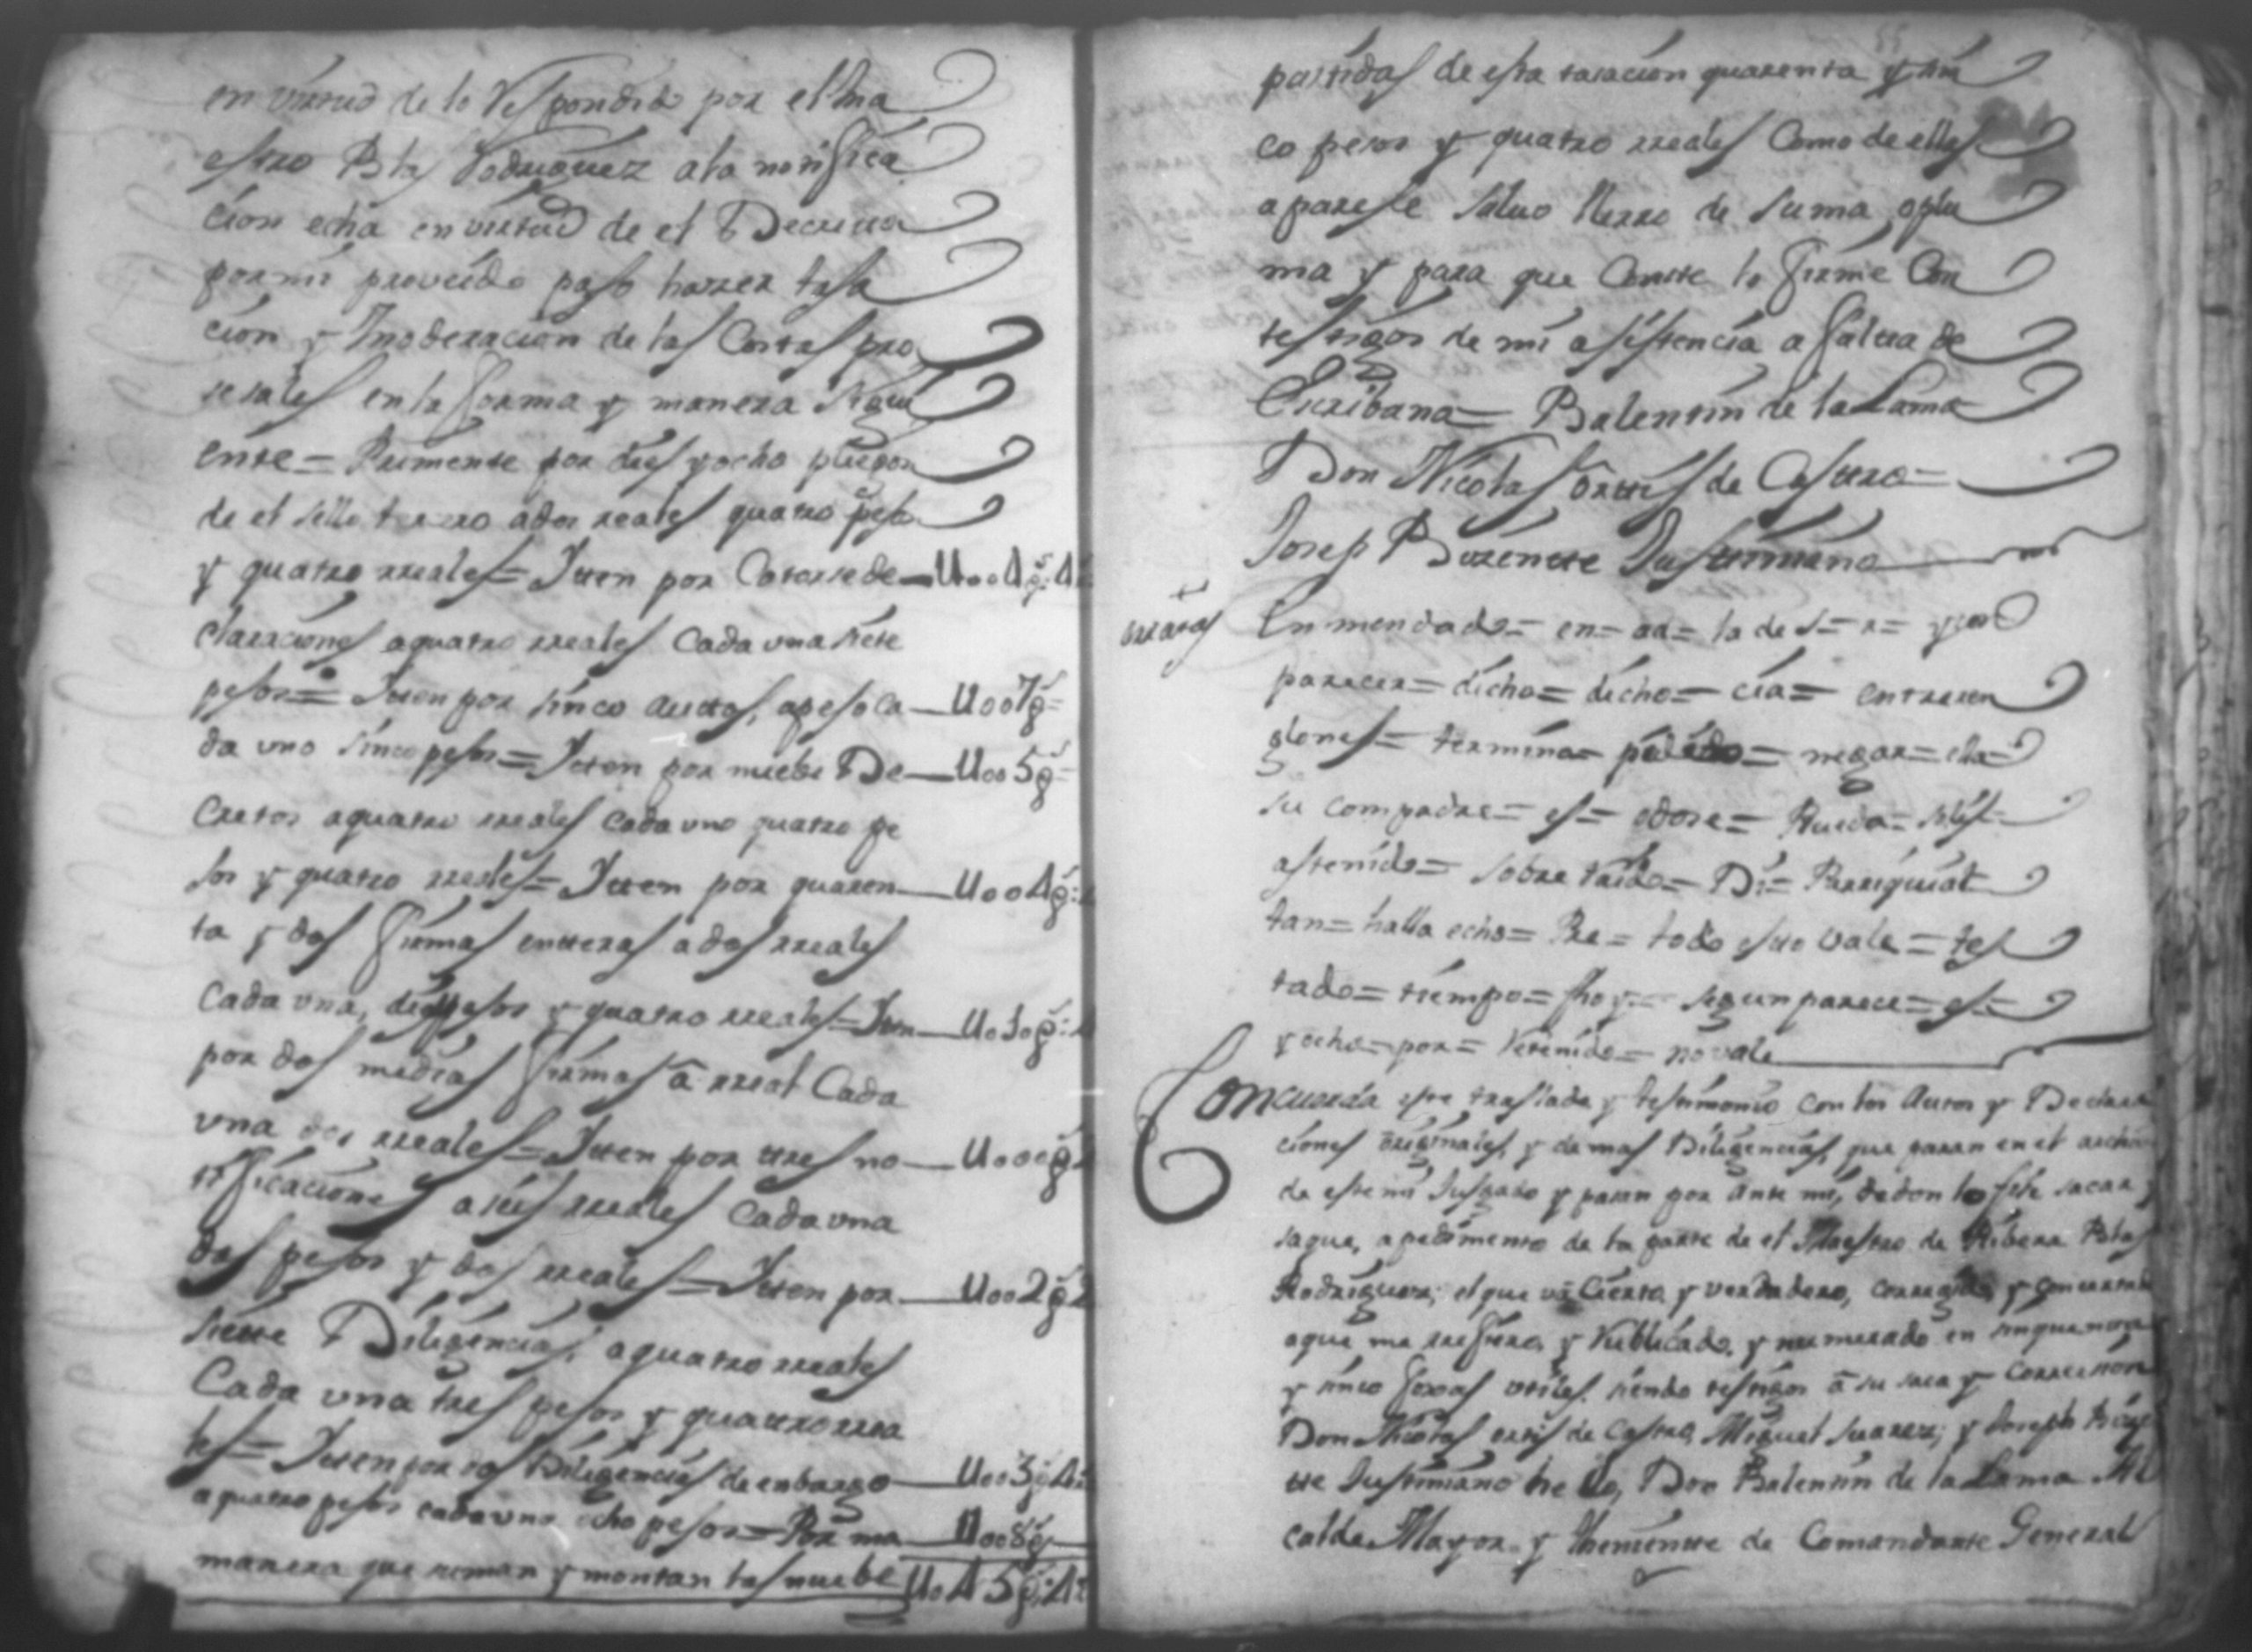 en virtud de lo Respondido por el Ma
estro Blas Rodriguez a la notifica
cion echa en virtud de el Decretto
por mi proveido paso hasser tasa
cion y Inoderacion de las Costas pro
sesales en la forma y manera sigui
ente = Primente por dies y ocho pliegos
de el sello tersero a dos reales quatro pesos
y quatro rreales = Itten por Catorse de — U004p̄s 4
claraciones a quatro rreales Cada una siete
pesos = Itten por sinco auttos, a peso ca — U007p̄s =
da uno sinco pesos = Itten por nuebe De — U005p̄s =
cretos a quatro rreales cada uno quatro pe
sos y quatro rreales = Itten por quaren — U004p̄s
ta y dos firmas entteras a dos rreales
Cada una, dies pesos y quatro rreales = Itten — U010p̄s
por dos medias firmas â rreal Cada
una dos rreales = Itten por tres no — U000p̄s
tificaciones a seis rreales Cada una
dos pesos y dos rreales = Itten por — U002p̄s
siette Diligencias, a quatro rreales
Cada una tres pesos y quattro rrea
les = Itten por dos Diligencias de enbargo — U003p̄s 4
a quatro pesos cada uno ocho pesos = Por ma — U008p̄s
manera que suman y montan las nuebe U045p̄s 4
partidas de esta tasacion quarenta y sin
co pesos y quatro rreales Como de ellas
aparese salvo Yerro de suma, o plu
ma y para que Conste lo firmé Con
testigos de mi asistencia a faltta de
Escribano = Balentin de la Lama
Don Nicolas Orttis de Casttro =
Josep Birente Justiniano
erratas Enmendado = en = ad = la de s = n = y por
parecer = dicho = dicho = cia = entrerren
glones = termina = pedido = negar = ella =
su compadre = es = odose = Rueda = seles =
astenido = sobre traido = Di = Parriquial =
tan = halla echo = Re = todo estto vale = tes
tado = tiempo = fho y = segun parece = es =
y ocho = por = Vesenido = no vale
Concuerda este traslado y testimonio con los Autos y Declara
ciones originales, y demas Diligencias, que paran en el archi
de este mi Jusgado y pasan por ante mi, de donde lo fise sacar y
saque, a pedimento de la parte de el Maestro de Ribera Blas
Rodriguez; el que vâ Cierto, y verdadero, corregido, y concertado
aque me rrefiero, y Rublicado, y numerado en sinquenta
y sinco foxas utiles, siendo testigos â su saca y correcion
Don Nicolas ortis de Castro, Miguel Suarez; y Joseph Bize
tte Justiniano he Yo, Don Balentin de la Lama Al
calde Mayor y theniente de Comandante General